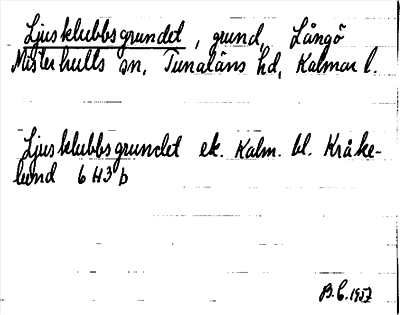 Ljusklubbsgrundet, grund, Långö
Misterhults sn, Tunaläns hd, Kalmar l.
Ljusklubbsgrundet ek. Kalm. bl. Kråke-
lund 6 H3 b
B.C. 1957